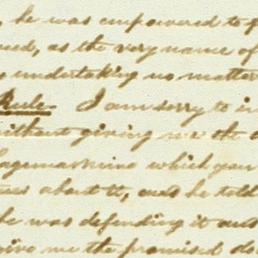 , he was empowered to
ued, as the very name of
undertaking no matter
Rule. I am sorry to in
without giving me the
which you
about it, and he told
he was defending it and
give me the promised do